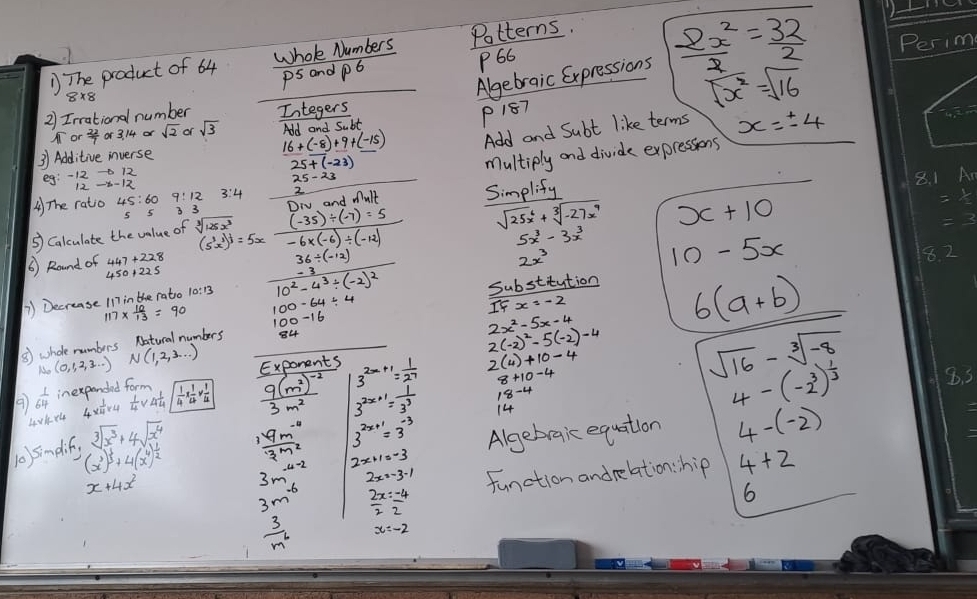 1) The product of 64
8x8
2) Irrational number
π or 22/7 or 3,14 or √2 or √3
3) Additive inverse
eg: -12 → 12
12 → -12
4) The ratio 45:60 9:12 3:4
5 5 3 3
5) Calculate the value of ∛125x³
(5³x³)^⅓ = 5x
6) Round of 447+228
450+225
7) Decrease 117 in the ratio 10:13
117 x 10/13 = 90
8) Whole numbers Natural numbers
N₀ (0,1,2,3...) N (1,2,3...)
9) 1/64 in expanded form
4x4x4
1/4 x 1/4 x 1/4
10) Simplify ∛x³ + 4√x⁴
(x³)^⅓ + 4(x⁴)^½
x + 4x²
Whole Numbers
p5 and p6
Integers
Add and Subt
16+(-8)+9+(-15)
25+(-23)
25-23
2
Div and Mult
(-35)÷(-7) = 5
-6x(-6)÷(-12)
36÷(-12)
-3
10² - 4³ ÷ (-2)²
100 - 64 ÷ 4
100 - 16
84
Exponents
9(m²)⁻²
3m²
9m⁻⁴
3m²
3m⁻⁴⁻²
3m⁻⁶
3
m⁶
3^(2x+1) = 1/27
3^(2x+1) = 1/3³
3^(2x+1) = 3⁻³
2x+1=-3
2x=-3-1
2x=-4
2 2
x=-2
Patterns.
P 66
Algebraic Expressions
p 187
Add and Subt like terms
Multiply and divide expressions
Simplify
5x³ - 3x³
2x³
Substitution
If x = -2
2x²-5x-4
2(-2)²-5(-2)-4
2(4)+10-4
8+10-4
18-4
14
Algebraic equation
Function and relationship
2x² = 32
2 2
√x² = √16
x = ±4
x + 10
10 - 5x
6(a+b)
√16 - ∛-8
4 - (-2³)^⅓
4 - (-2)
4 + 2
6
Perim
8.1
8.2
8.3